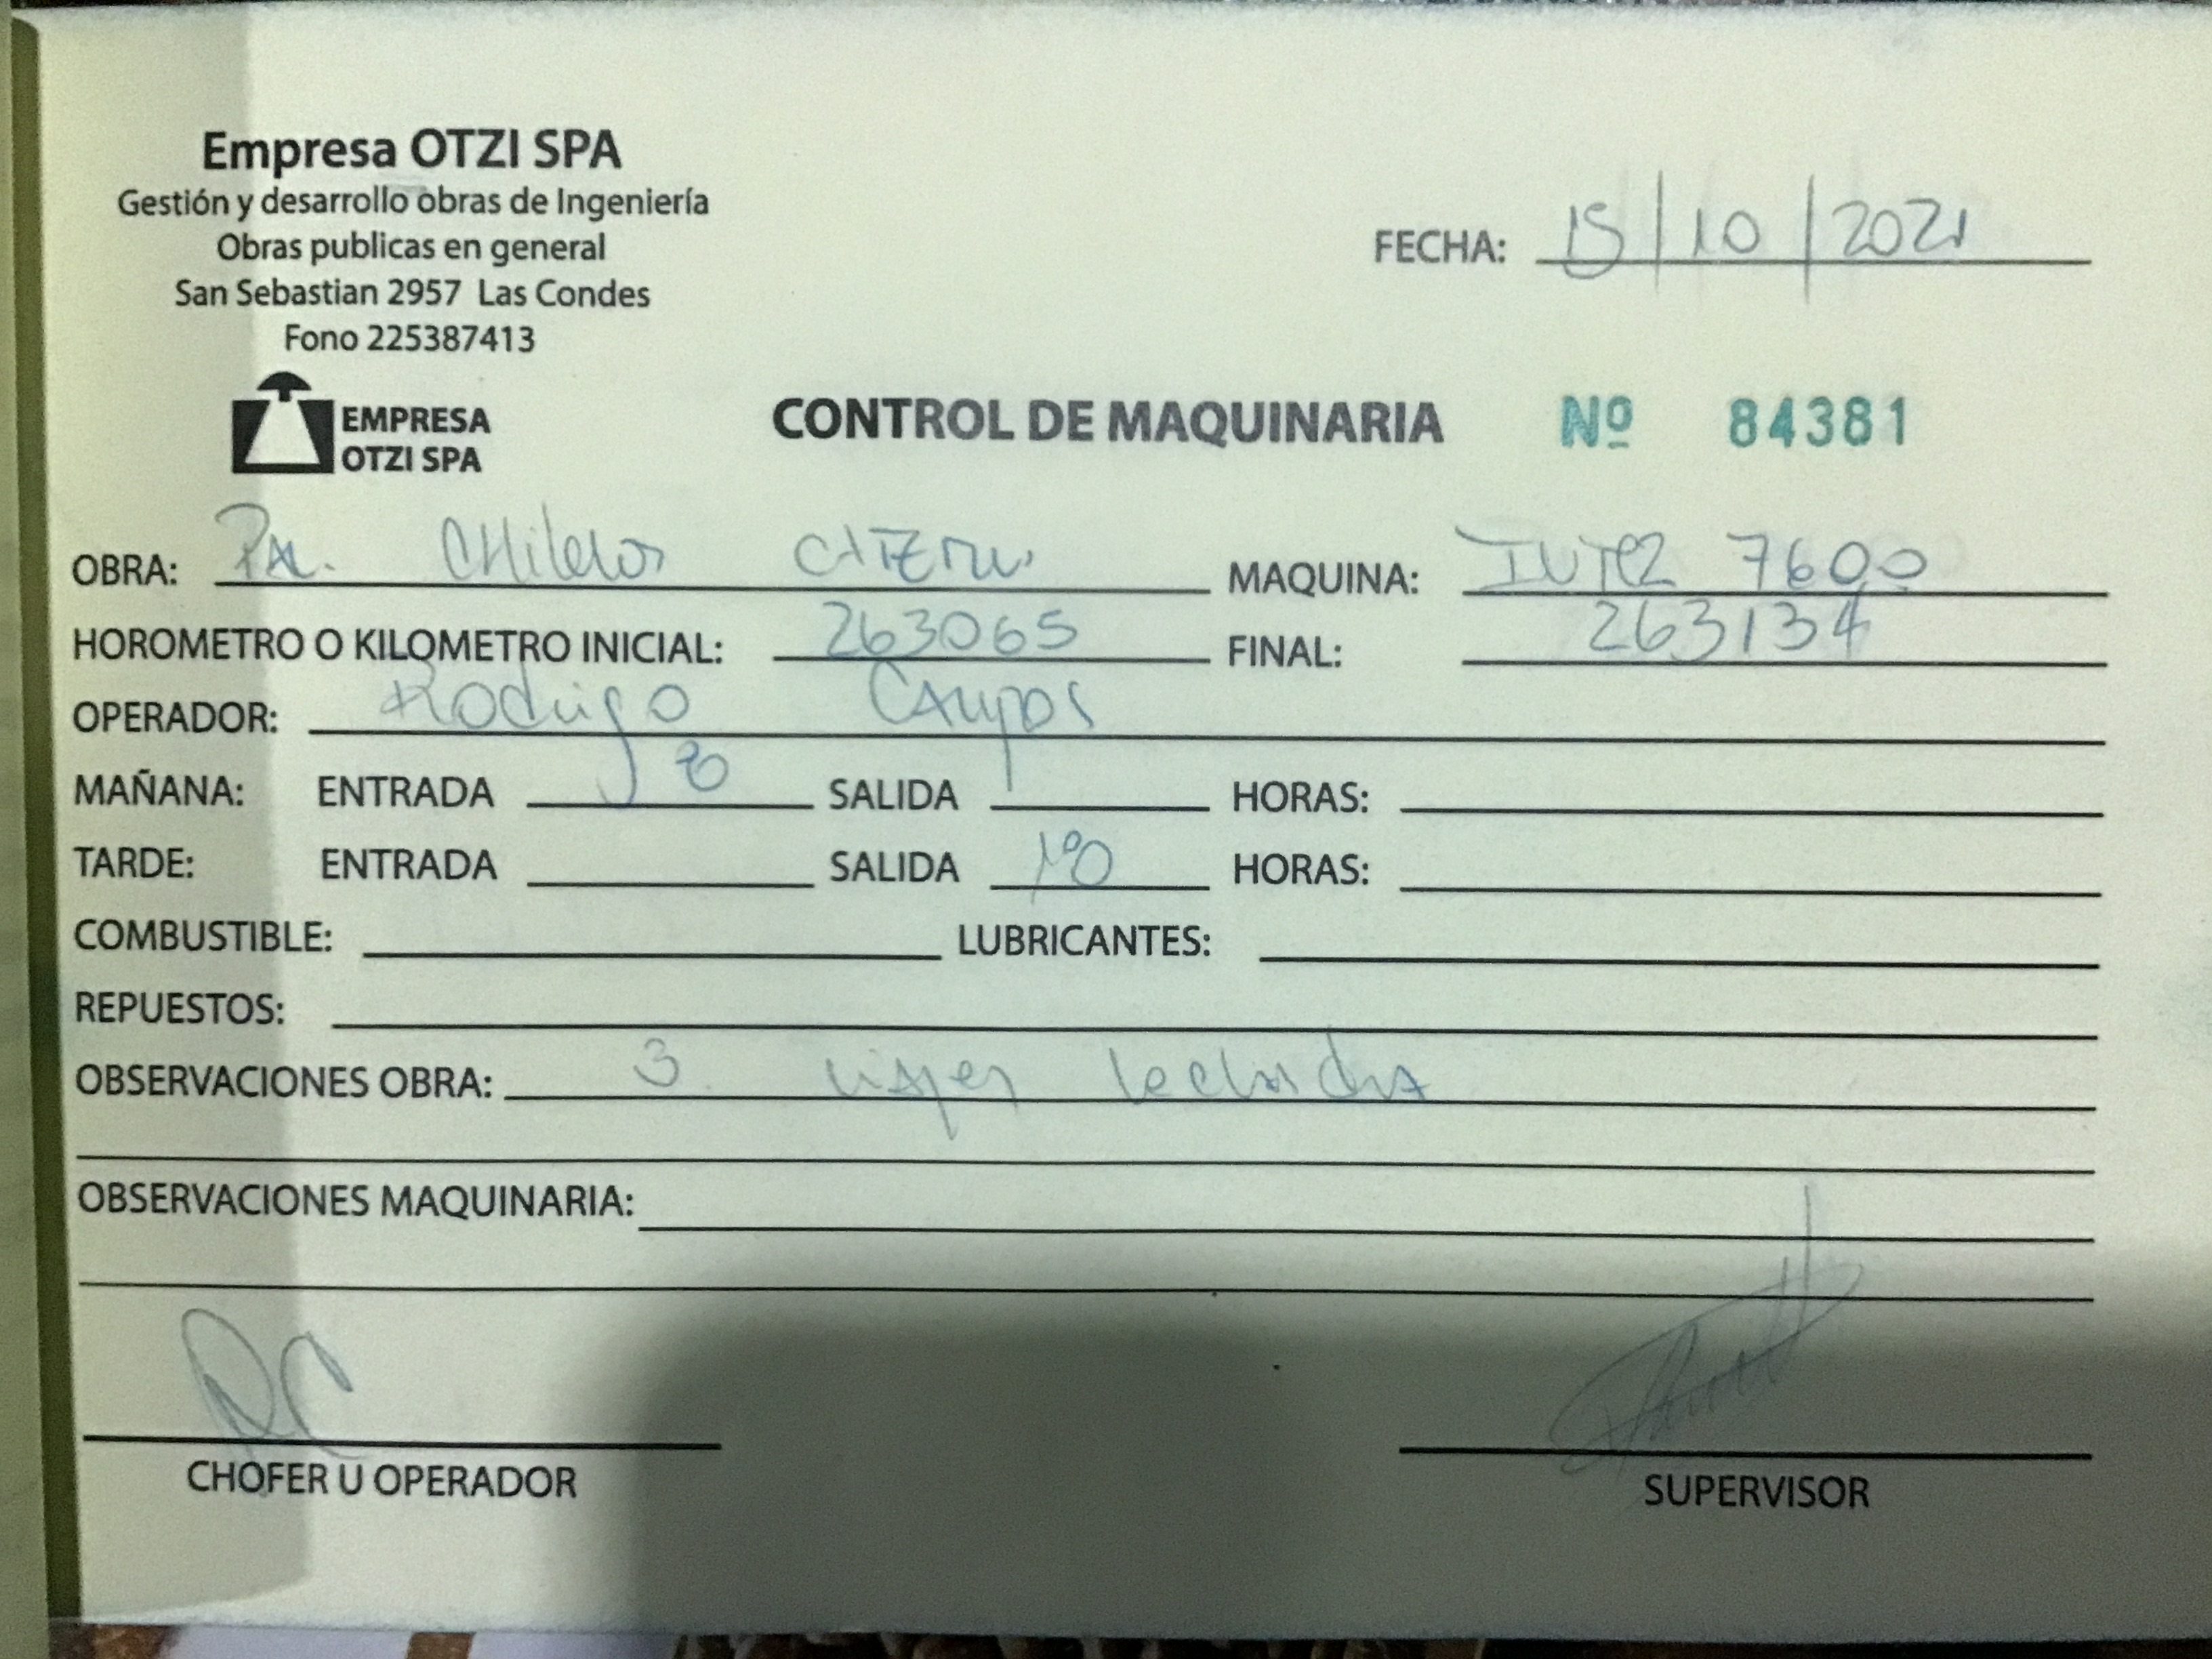 Empresa OTZI SPA
Gestión y desarrollo obras de Ingeniería
Obras publicas en general
San Sebastian 2957 Las Condes
Fono 225387413
FECHA: 15/10/2021
EMPRESA
OTZI SPA
CONTROL DE MAQUINARIA Nº 84381
OBRA: MAQUINA: 7600
HOROMETRO O KILOMETRO INICIAL: 263065 FINAL: 263134
OPERADOR: Rodrigo Campos
MAÑANA: ENTRADA 8 SALIDA HORAS:
TARDE: ENTRADA SALIDA HORAS:
COMBUSTIBLE: LUBRICANTES:
REPUESTOS:
OBSERVACIONES OBRA: 3 viajes lechada
OBSERVACIONES MAQUINARIA:
RC
CHOFER U OPERADOR
SUPERVISOR